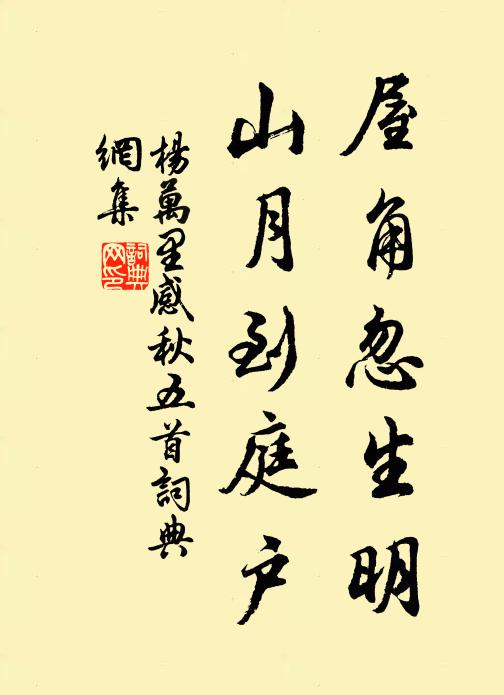 屋角忽生明
山月到庭户
楊萬里感秋五首詞典
網集
詞典
网印